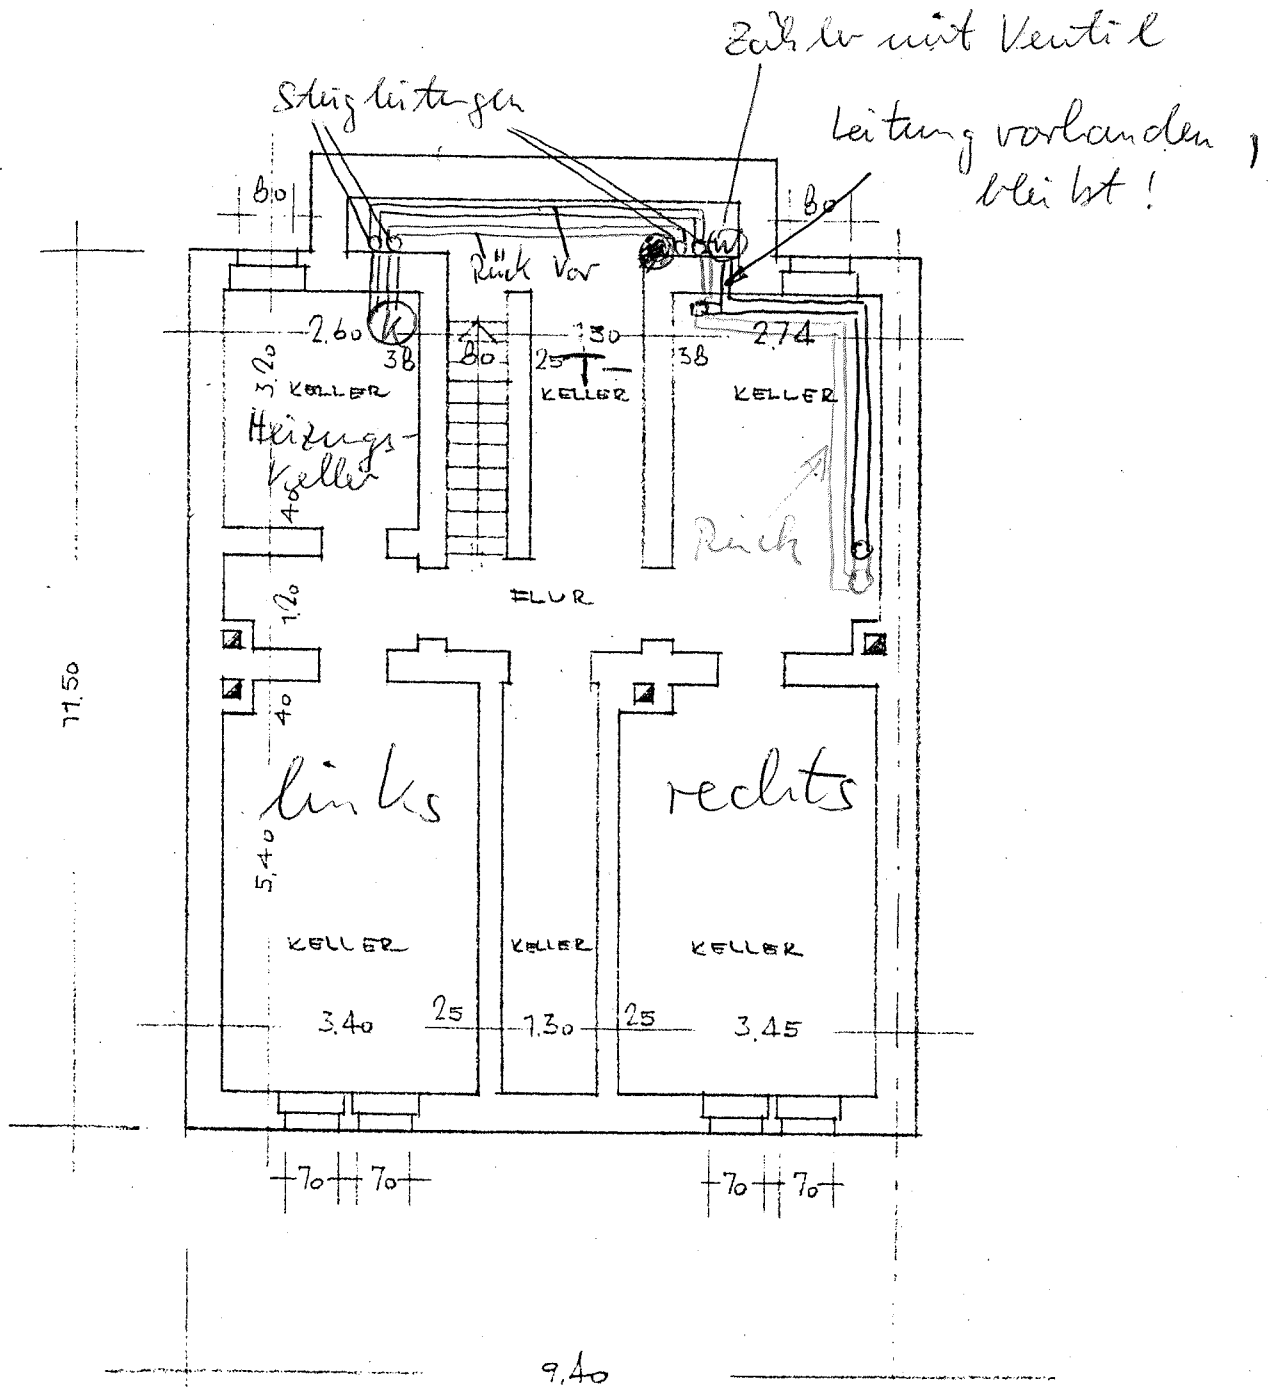 Zähler mit Ventil
Steigleitungen
Leitung vorhanden,
bleibt!
80
80
Rück Vor
W
K
2.60
38
80
25
1.30
38
2.74
3.20
KELLER
KELLER
KELLER
Heizungs-
keller
40
Rück
1.20
FLUR
11.50
40
links
rechts
5.40
KELLER
KELLER
KELLER
3.40
25
1.30
25
3.45
70
70
70
70
9.40